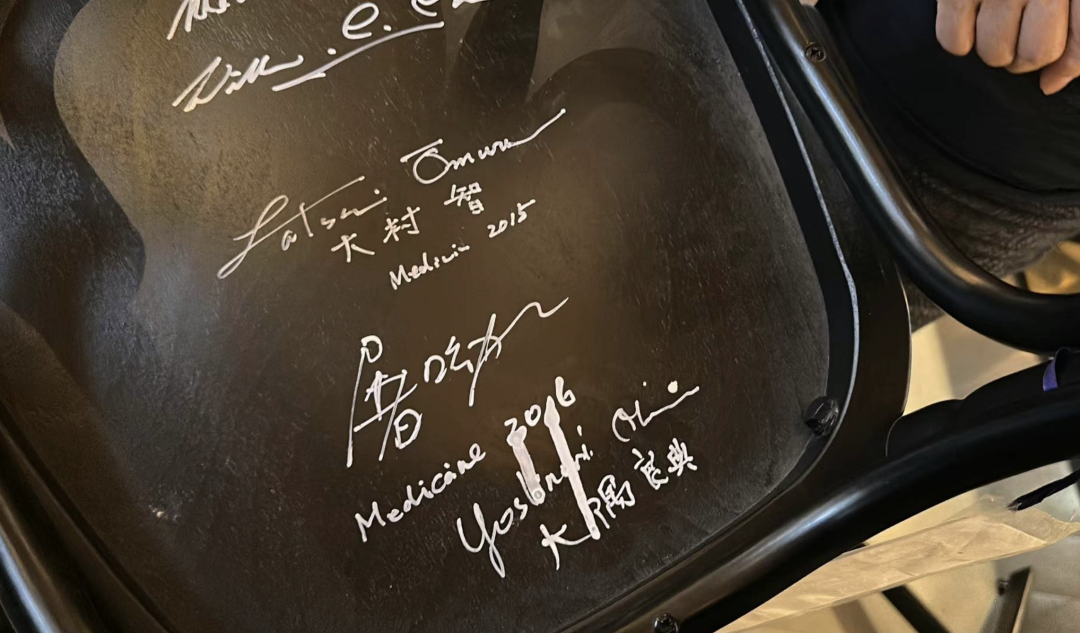 Will . C. C
Satoshi Ōmura
大村 智
Medicin 2015
屠呦呦
Medicine 2016
Yoshinori Ohsumi
大隅良典